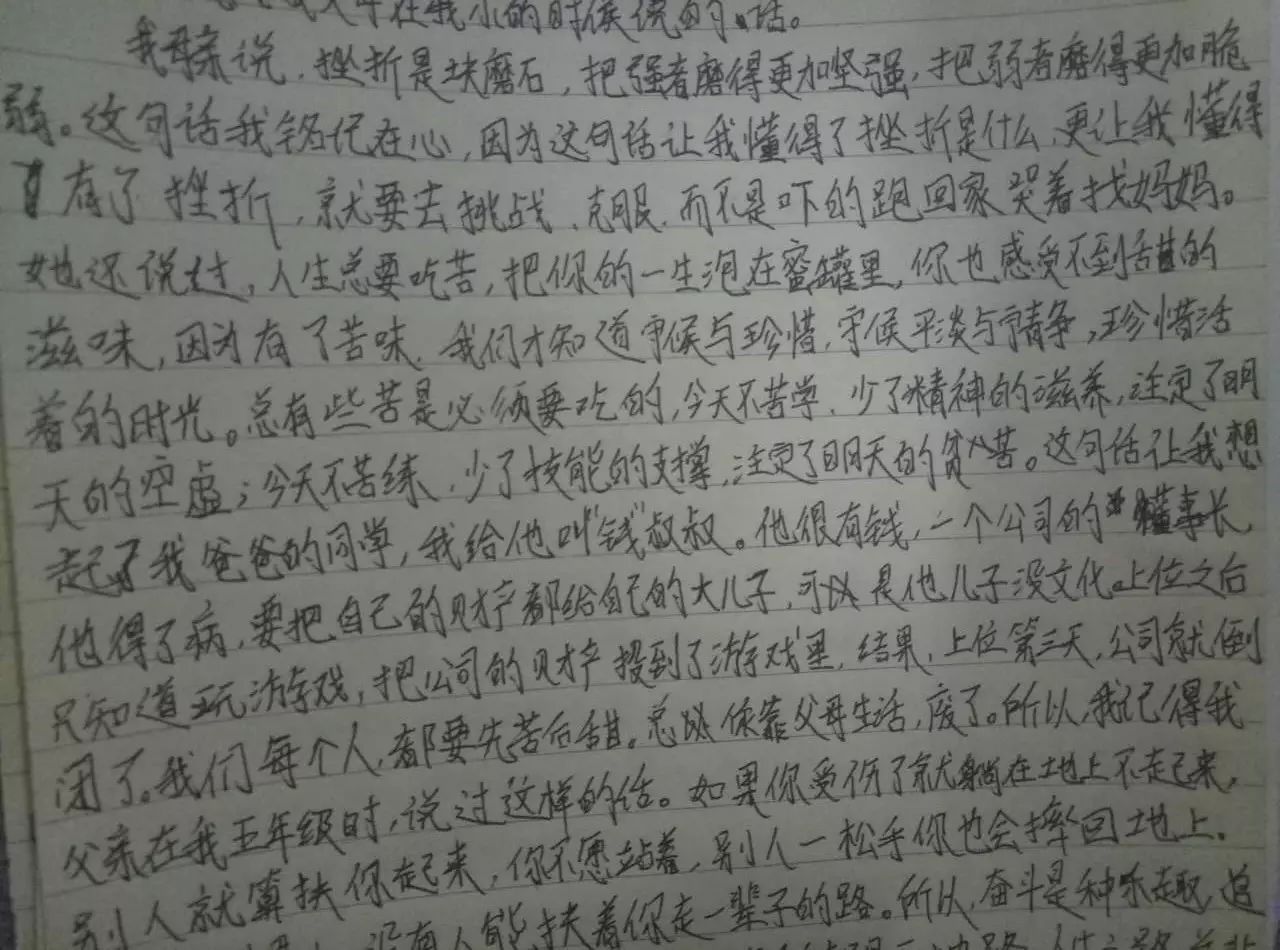 在我小的时候说的话。
我母亲说,挫折是块磨石,把强者磨得更加坚强,把弱者磨得更加脆
弱。这句话我铭记在心,因为这句话让我懂得了挫折是什么,更让我懂得
有了挫折,就要去挑战、克服,而不是吓的跑回家哭着找妈妈。
她还说过,人生总要吃苦,把你的一生泡在蜜罐里,你也感受不到甜的
滋味,因为有了苦味,我们才知道守候与珍惜,守候平淡与宁静,珍惜活
着的时光。总有些苦是必须要吃的,今天不苦学,少了精神的滋养,注定了明
天的空虚;今天不苦练,少了技能的支撑,注定了明天的贫苦。这句话让我想
起了我爸爸的同学,我给他叫“钱”叔叔。他很有钱,一个公司的董事长,
他得了病,要把自己的财产都给自己的大儿子,可是他儿子没文化。上位之后
只知道玩游戏,把公司的财产投到了游戏里,结果,上位第三天,公司就倒
闭了。我们每个人,都要先苦后甜。总以你靠父母生活,废了。所以,我记得我
父亲在我五年级时,说过这样的话。如果你受伤了就躺在地上不起来,
别人就算扶你起来,你不愿站着,别人一松手你也会摔回土地上。
没有人能扶着你走一辈子的路。所以,奋斗是种乐趣,追